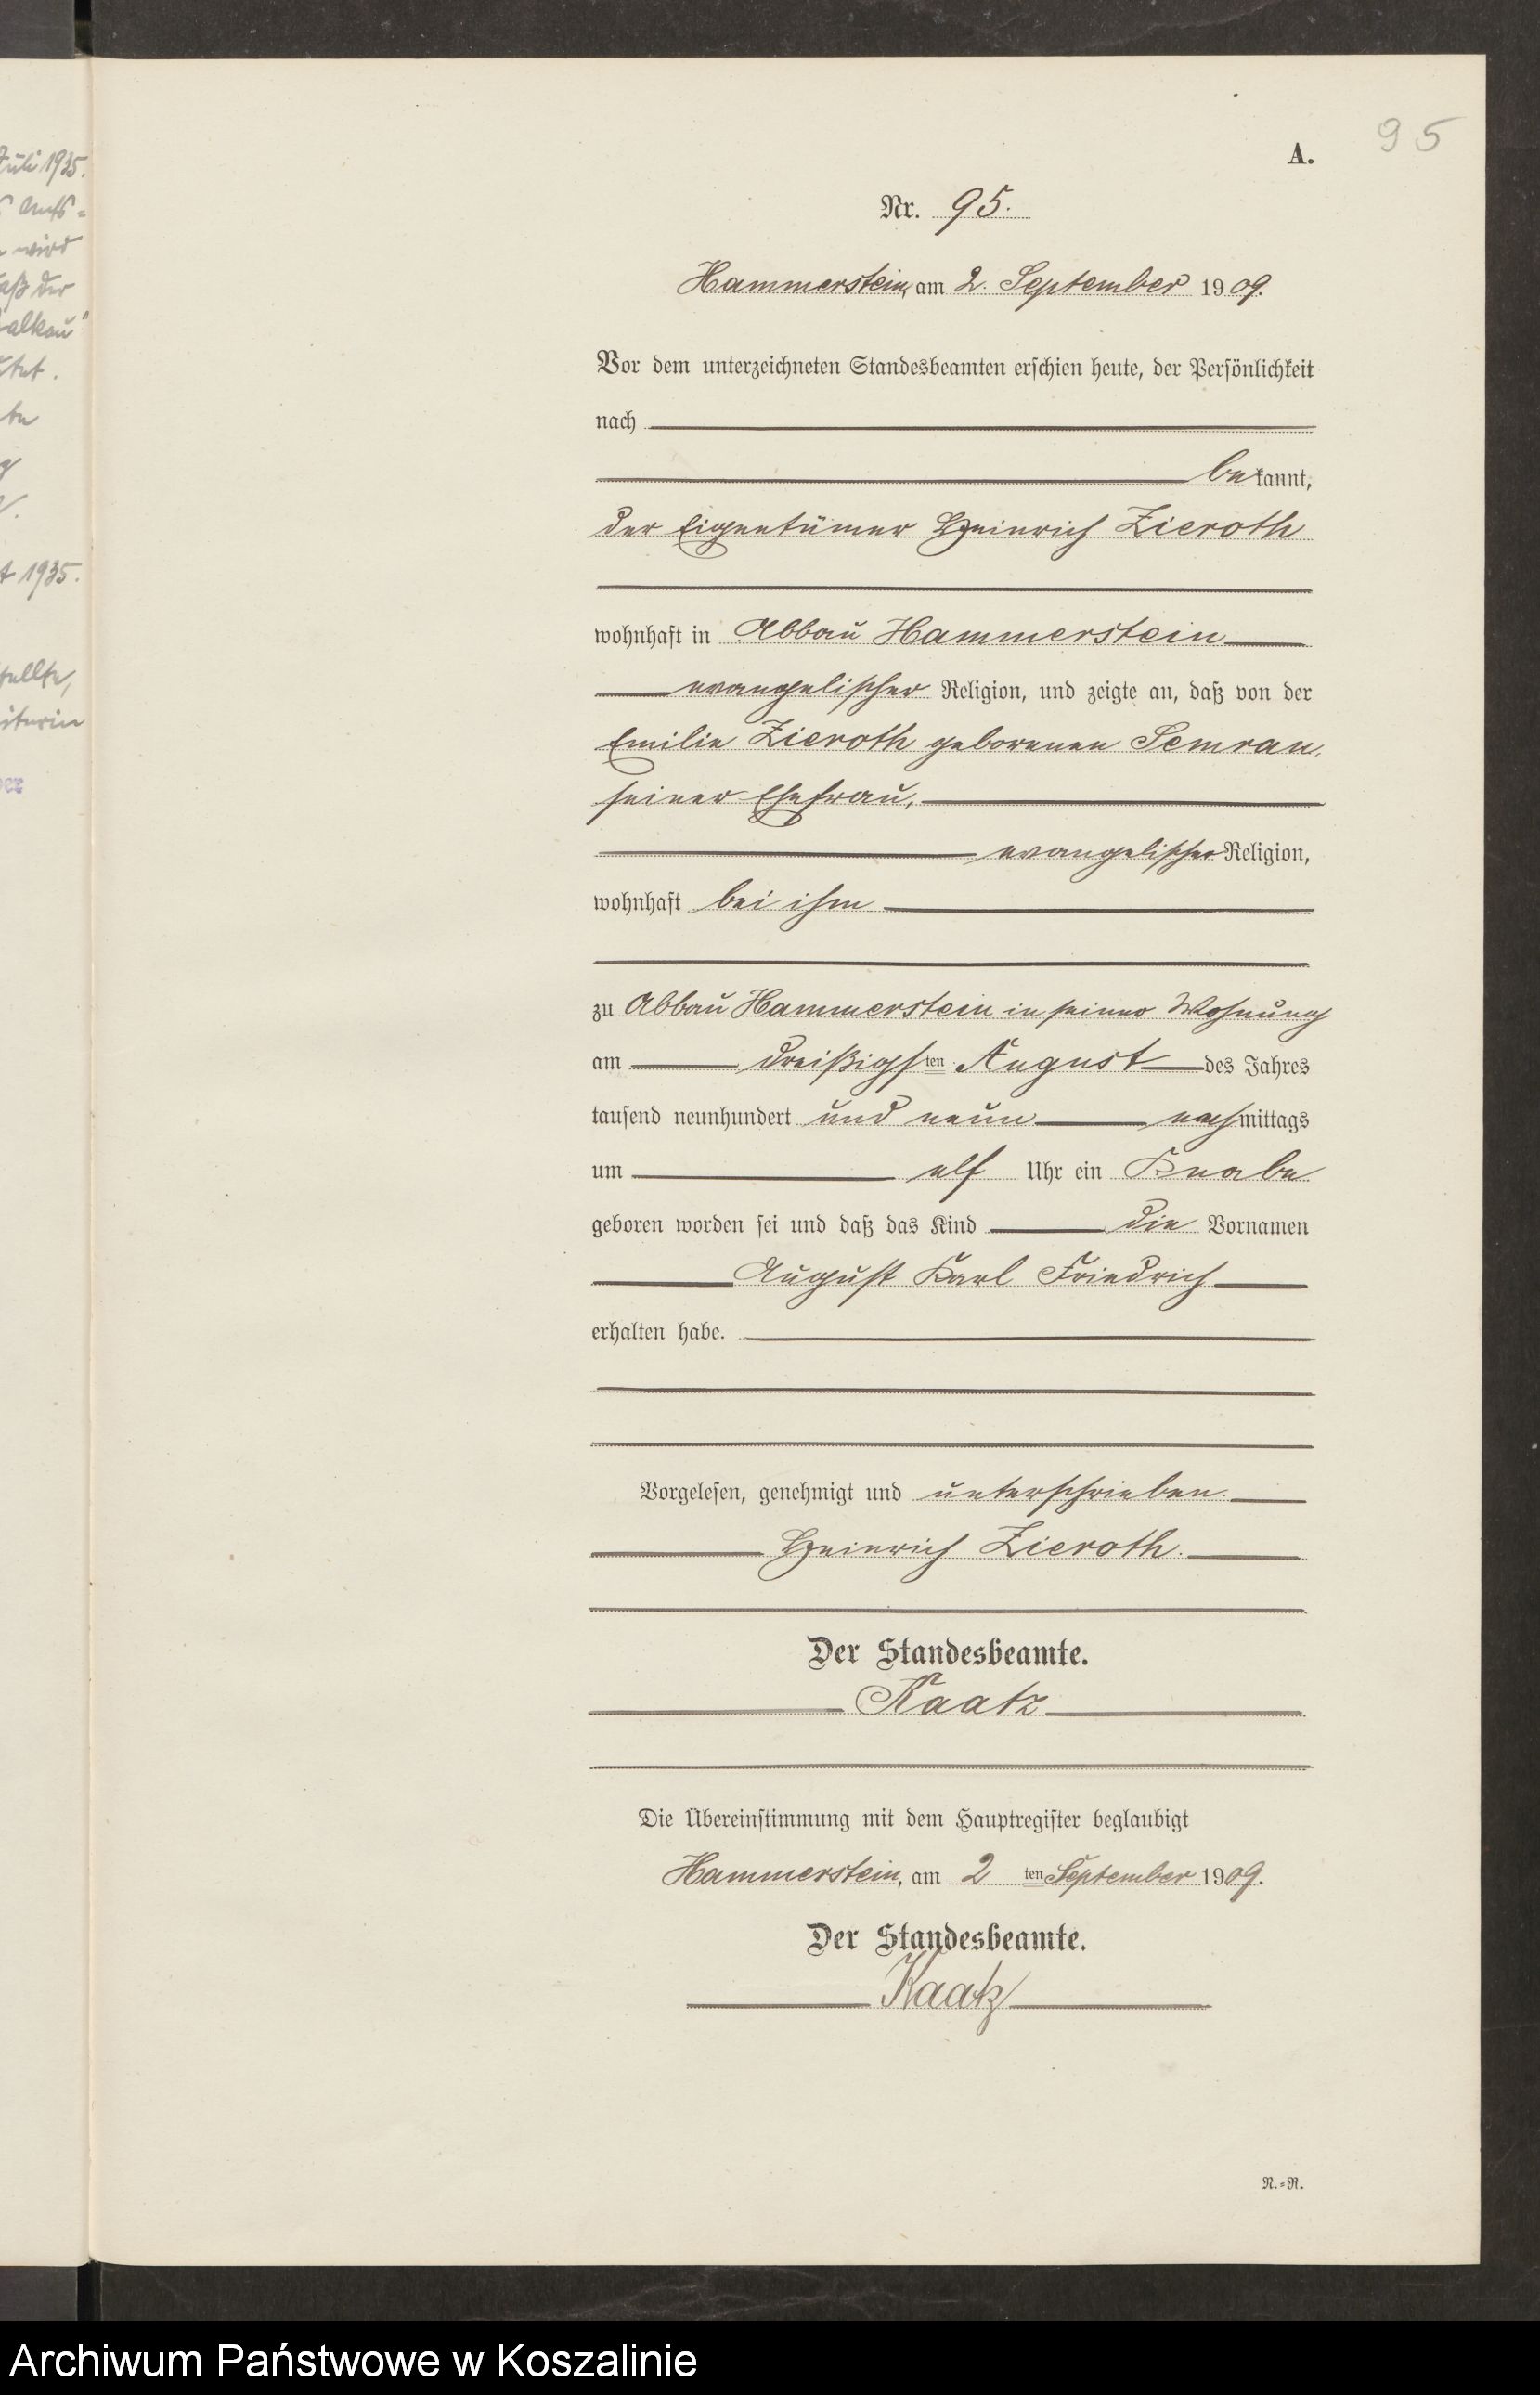 Juli 1935.
Amts-
wird
daß der
alkau"
1935.
stellte,
95
A.
Nr. 95.
Hammerstein, am 2. September 1909.
Vor dem unterzeichneten Standesbeamten erschien heute, der Persönlichkeit
nach
bekannt,
der Eigentümer Heinrich Zieroth
wohnhaft in Abbau Hammerstein
evangelischer Religion, und zeigte an, daß von der
Emilie Zieroth geborenen Semrau,
seiner Ehefrau,
evangelischer Religion,
wohnhaft bei ihm
zu Abbau Hammerstein in seiner Wohnung
am dreißigsten August des Jahres
tausend neunhundert und neun nachmittags
um elf Uhr ein Knabe
geboren worden sei und daß das Kind die Vornamen
August Karl Friedrich
erhalten habe.
Vorgelesen, genehmigt und unterschrieben.
Heinrich Zieroth.
Der Standesbeamte.
Kaatz
Die Übereinstimmung mit dem Hauptregister beglaubigt
Hammerstein, am 2ten September 1909.
Der Standesbeamte.
Kaatz
N.=R.
Archiwum Państwowe w Koszalinie